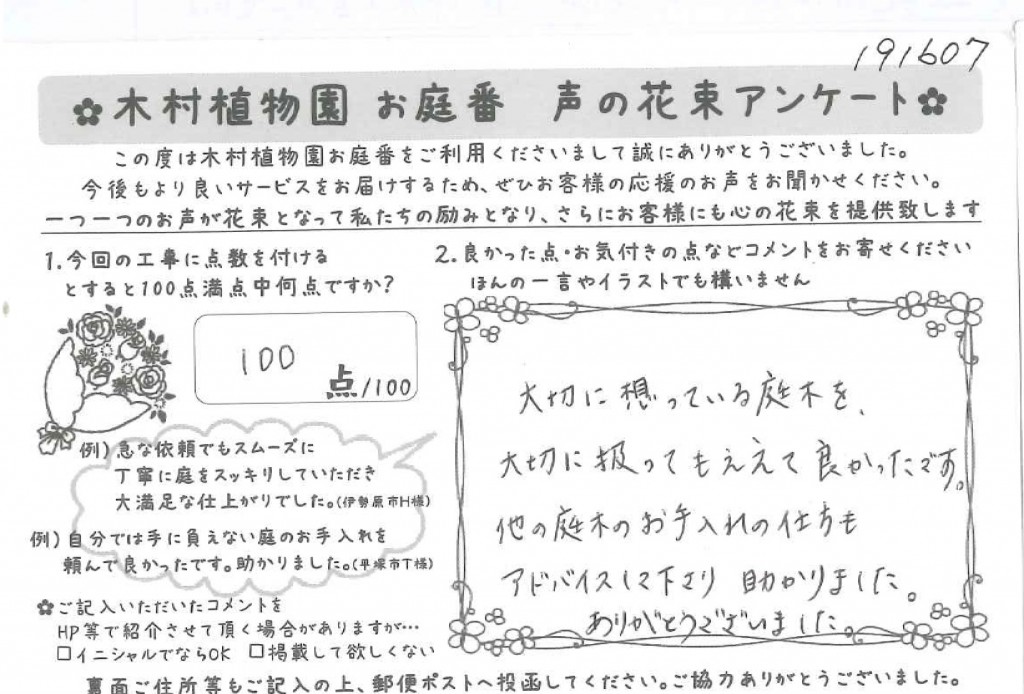 191607
木村植物園 お庭番 声の花束アンケート
この度は木村植物園お庭番をご利用くださいまして誠にありがとうございました。
今後もより良いサービスをお届けするため、ぜひお客様の応援のお声をお聞かせください。
一つ一つのお声が花束となって私たちの励みとなり、さらにお客様にも心の花束を提供致します
1.今回の工事に点数を付ける
とすると100点満点中何点ですか?
100
点/100
例)急な依頼でもスムーズに
丁寧に庭をスッキリしていただき
大満足な仕上がりでした。(伊勢原市H様)
例)自分では手に負えない庭のお手入れを
頼んで良かったです。助かりました。(平塚市T様)
ご記入いただいたコメントを
HP等で紹介させて頂く場合がありますが…
□イニシャルでならOK □掲載して欲しくない
2.良かった点・お気付きの点などコメントをお寄せください
ほんの一言やイラストでも構いません
大切に想っている庭木を、
大切に扱ってもらえて良かったです。
他の庭木のお手入れの仕方も
アドバイスして下さり 助かりました。
ありがとうございました。
裏面ご住所等もご記入の上、郵便ポストへ投函してください。ご協力ありがとうございました。